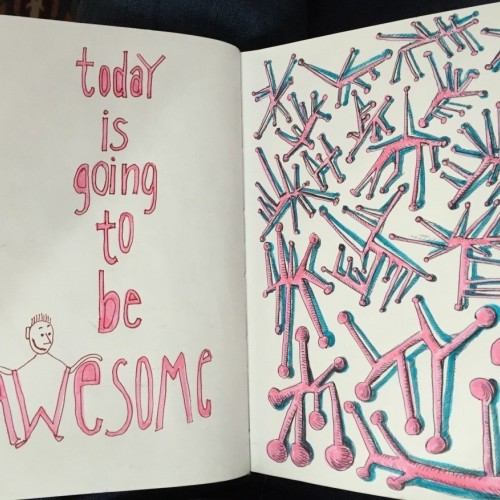 today
is
going
to
be
AWESOME